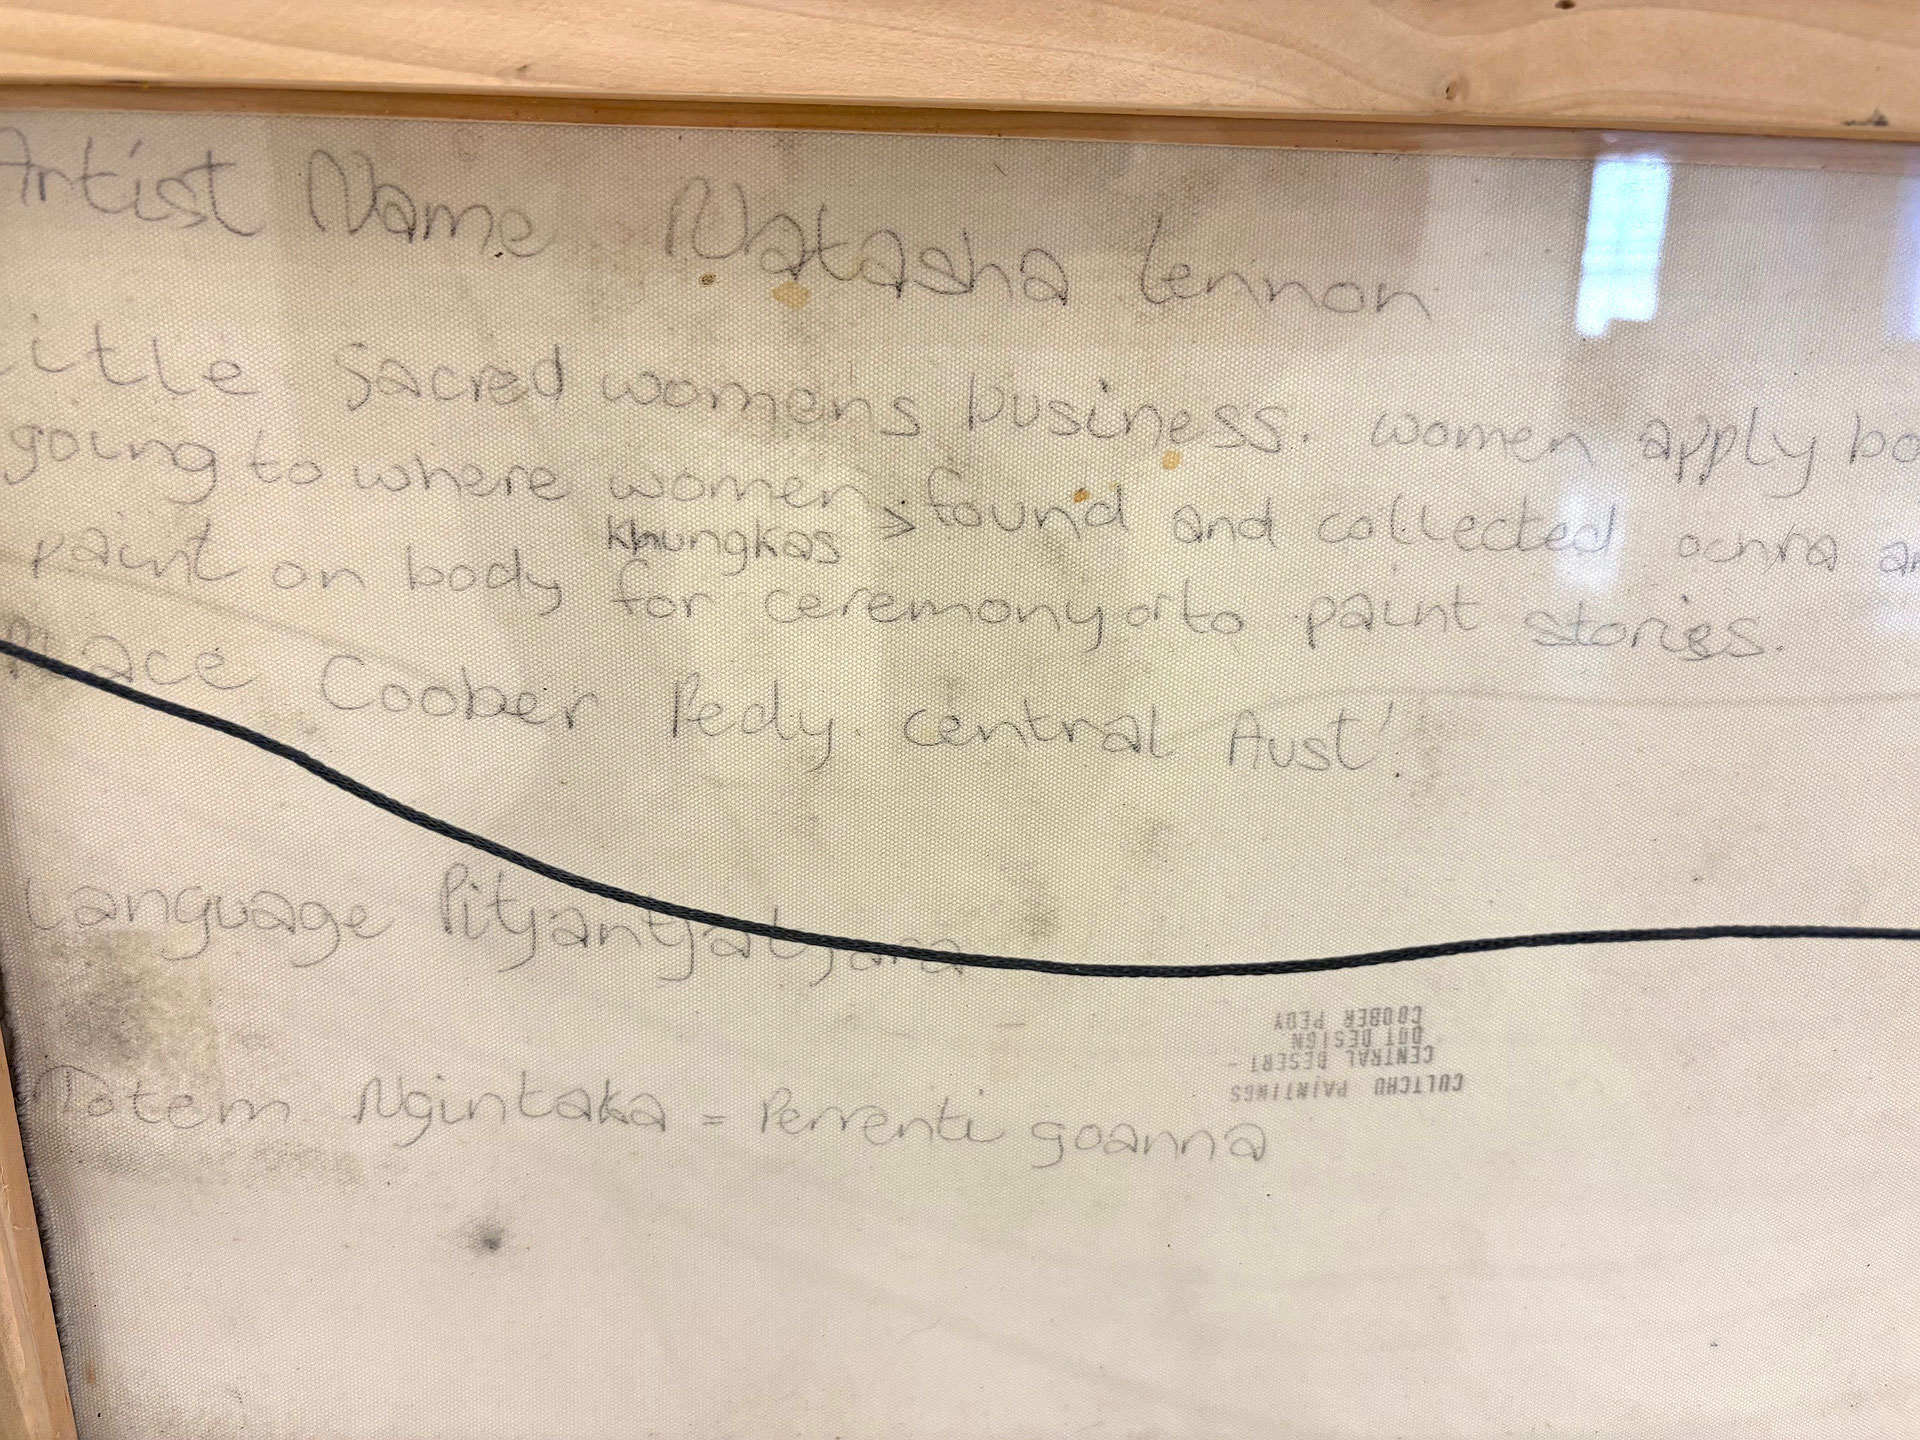 Artist Name Natasha Lennon
itle Sacred womens business. women apply bo
going to where women found and collected
Khungkas >
paint on body for ceremony or to paint stories.
Place Coober Pedy. Central Aust'.
Language Pitjantjatjara
Totem Ngintaka = Perrenti goanna
CULTCHU PAINTINGS
CENTRAL DESERT -
DOT DESIGN
COOBER PEDY